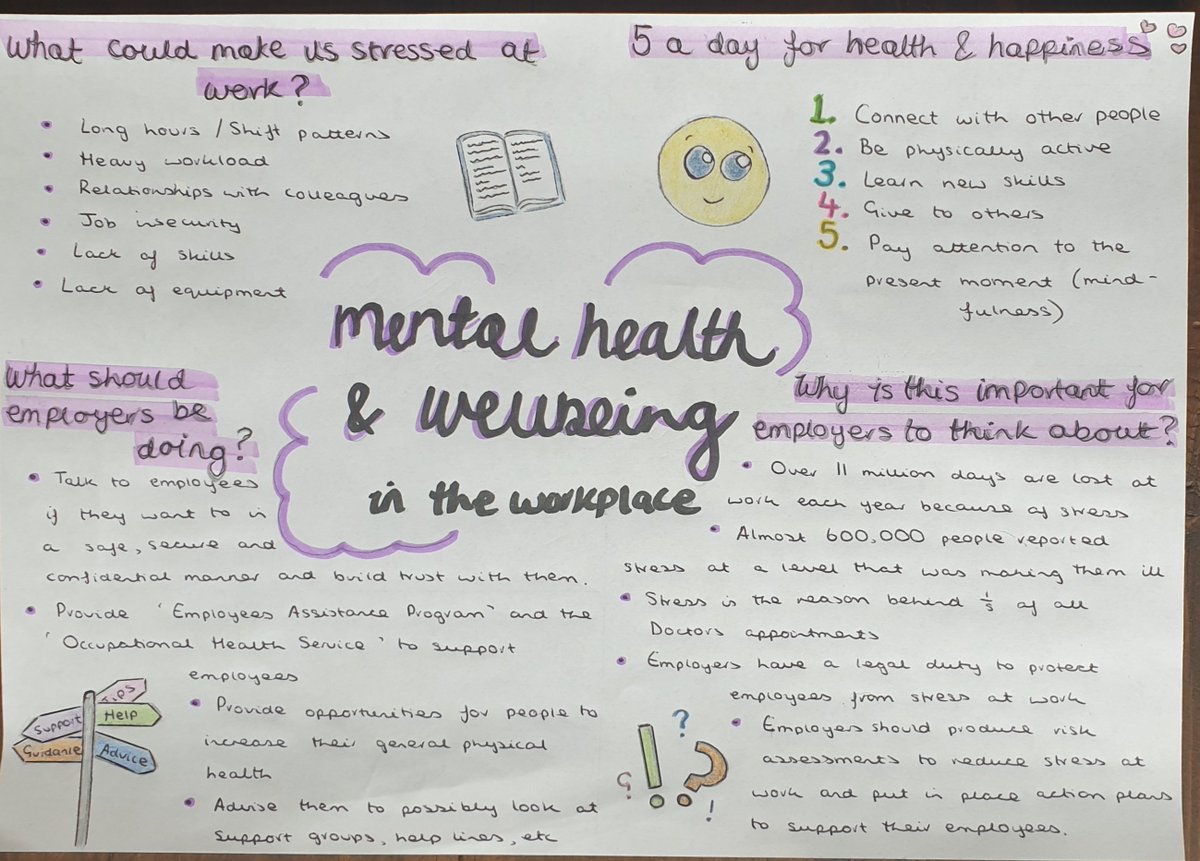 What could make us stressed at
work?
• Long hours / Shift patterns
• Heavy workload
• Relationships with colleagues
• Job insecurity
• Lack of skills
• Lack of equipment
5 a day for health & happiness
1. Connect with other people
2. Be physically active
3. Learn new skills
4. Give to others
5. Pay attention to the
present moment (mind-
fulness)
mental health
& wellbeing
in the workplace
What should
employers be
doing?
• Talk to employees
if they want to in
a safe, secure and
confidential manner and build trust with them.
• Provide 'Employees Assistance Program' and the
'Occupational Health Service' to support
employees
• Provide opportunities for people to
increase their general physical
health
• Advise them to possibly look at
support groups, help lines, etc
Tips
Support
Help
Guidance
Advice
Why is this important for
employers to think about?
• Over 11 million days are lost at
work each year because of stress
• Almost 600,000 people reported
stress at a level that was making them ill
• Stress is the reason behind 1/5 of all
Doctors appointments
• Employers have a legal duty to protect
employees from stress at work
• Employers should produce risk
assessments to reduce stress at
work and put in place action plans
to support their employees.
? ! ? ? !